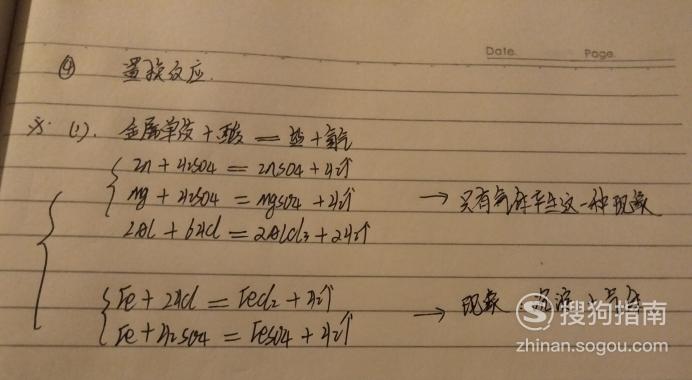 Date. Page.
④ 置换反应.
(1). 金属单质 + 酸 = 盐 + 氢气
Zn + H2SO4 = ZnSO4 + H2↑
Mg + H2SO4 = MgSO4 + H2↑ → 只有气体产生这一种现象
2Al + 6HCl = 2AlCl3 + 2H2↑
Fe + 2HCl = FeCl2 + H2↑ → 现象
Fe + H2SO4 = FeSO4 + H2↑
搜狗指南
zhinan.sogou.com